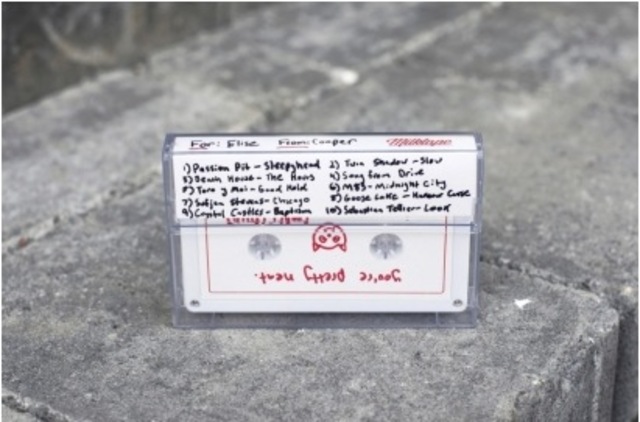 For: Elise From: Cooper Milktape
1) Passion Pit - Sleepyhead 2) Twin Shadow - Slow
3) Death House - The 4) Song from Drive
5) Toro y Moi - Good Hold 6) M83 - Midnight City
7) Sufjan Stevens - Chicago 8) Goose Lake - Harbour Curse
9) Crystal Castles - Baptism 10) Sebastian Tellier - Look
you're pretty neat.